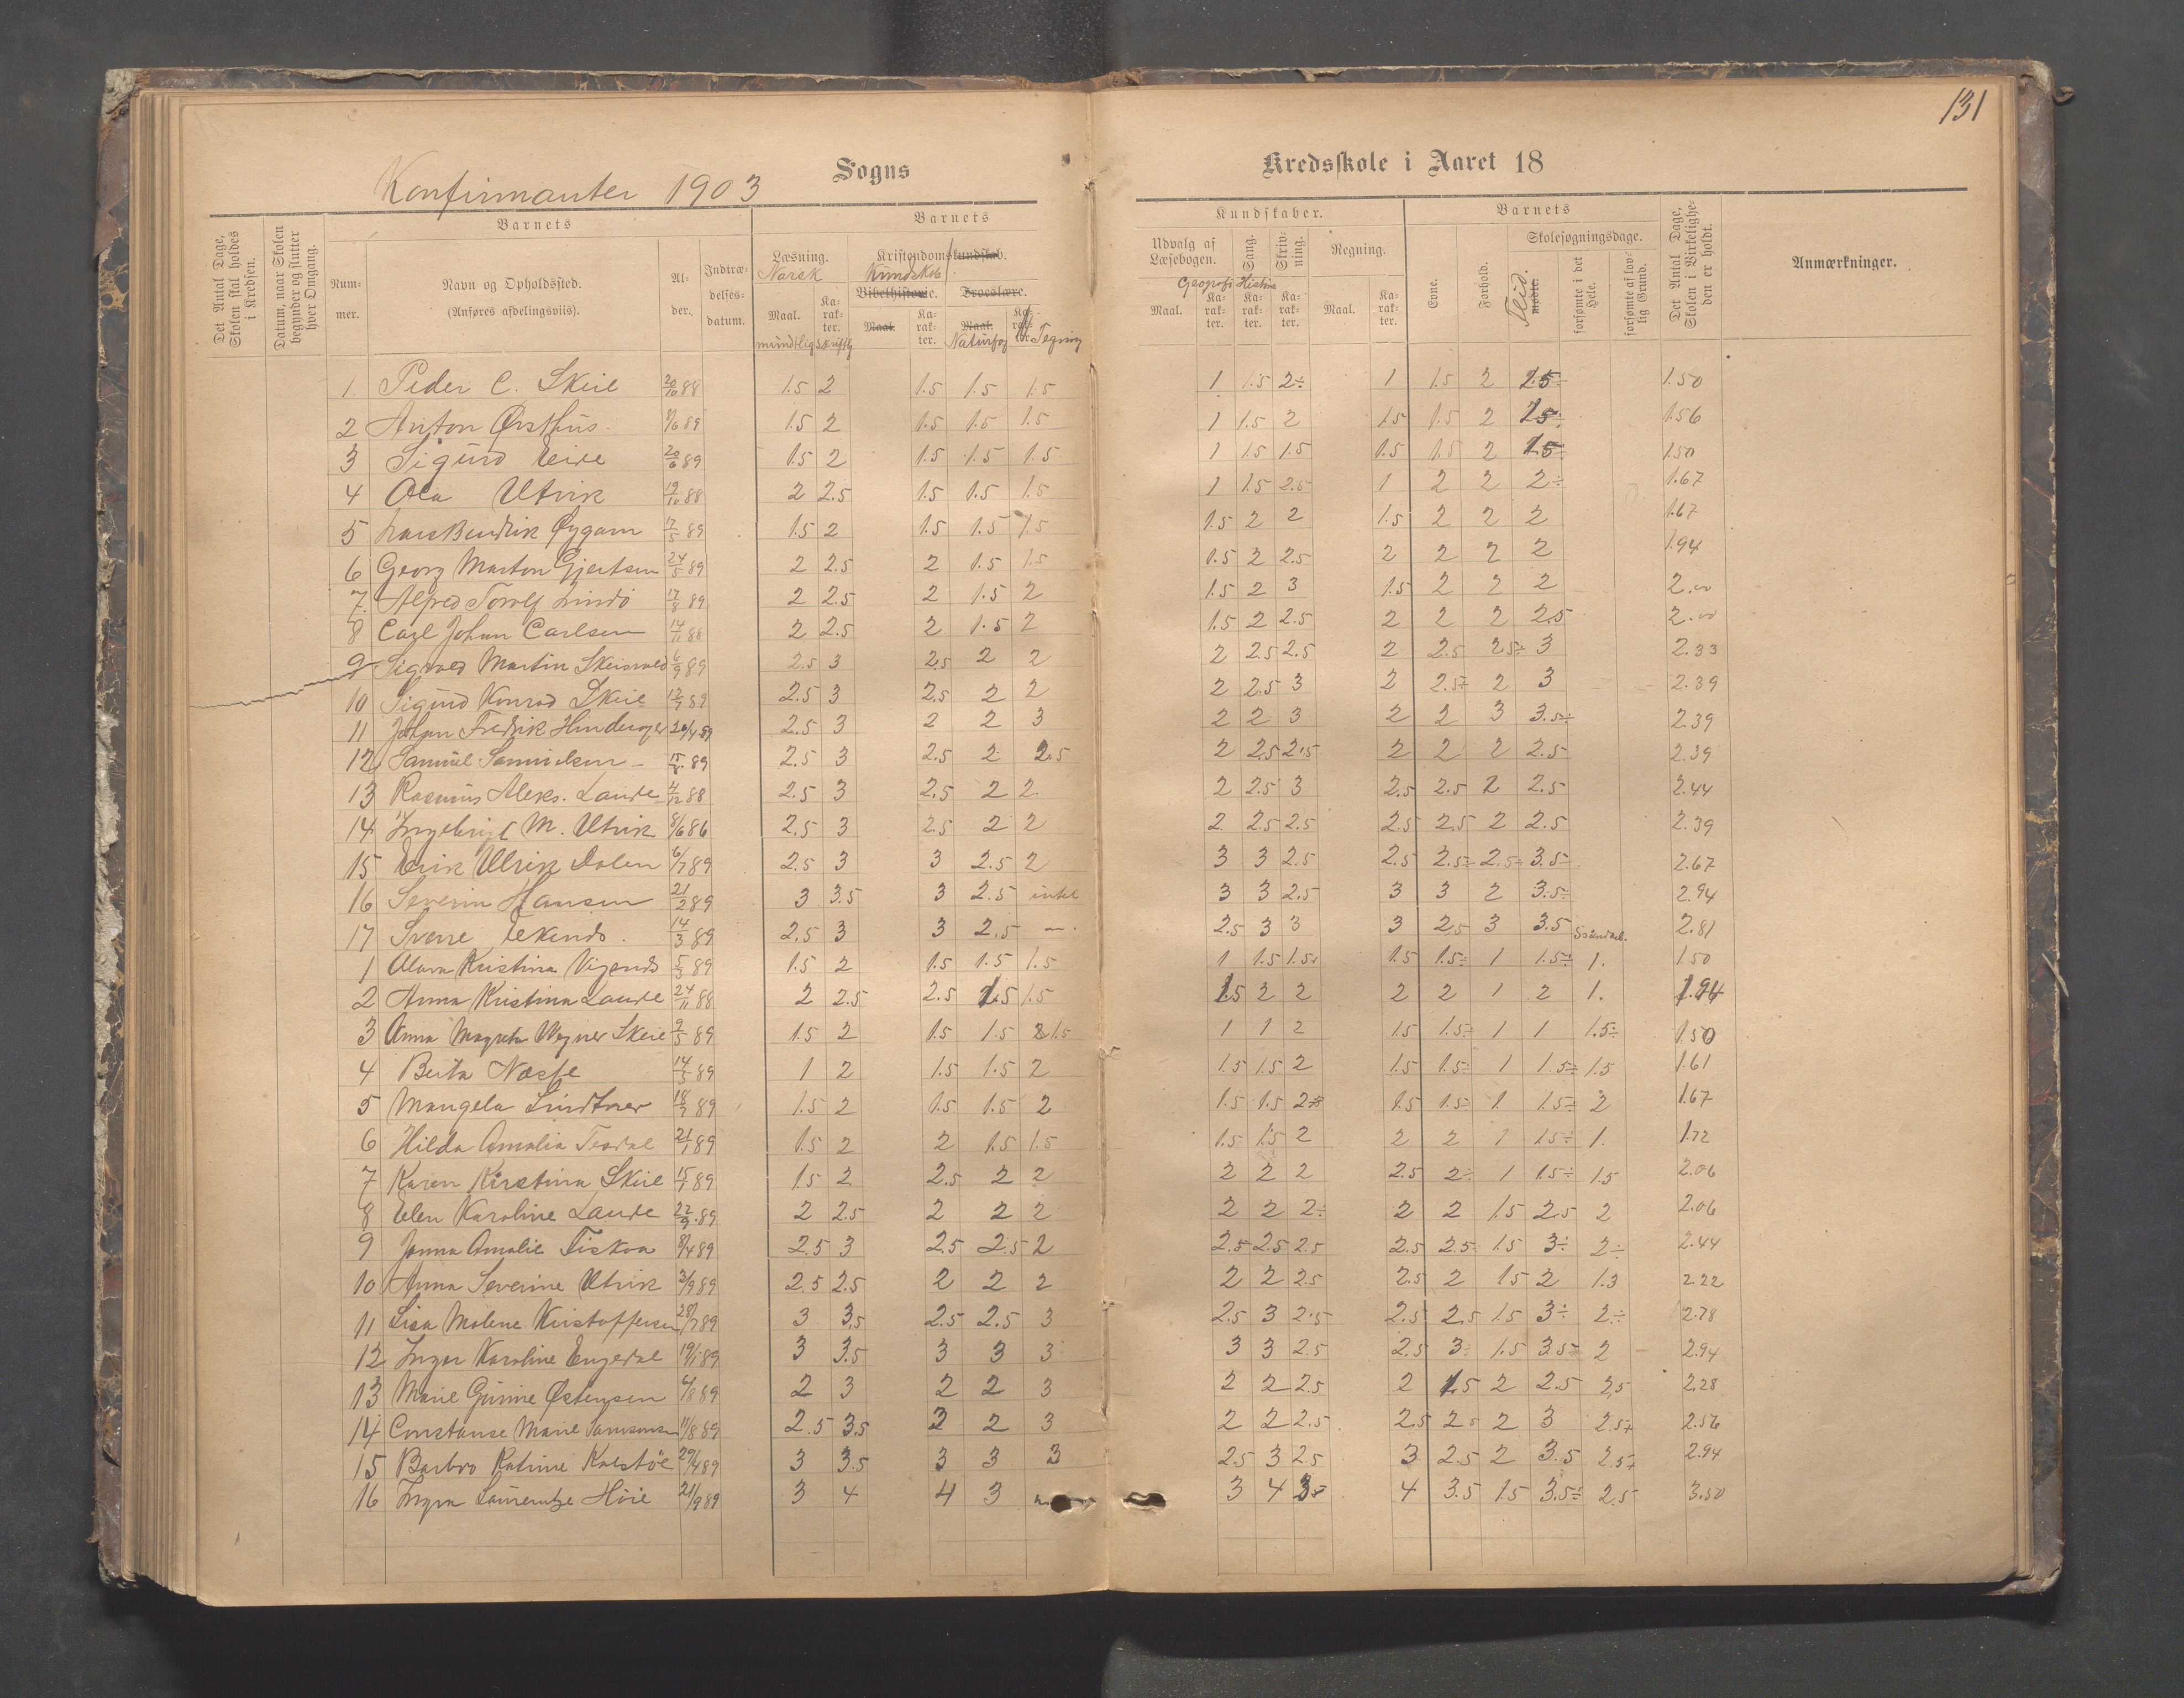 131
Konfirmanter 1903 Sogns Kredsskole i Aaret 18
Det Antal Dage, Skolen skal holdes i Kredsen.
Datum, naar Skolen begynder og slutter hver Omgang.
Barnets
Num-mer.
Navn og Opholdssted.
(Anføres afdelingsviis).
Al-der.
Indtræ-delses-datum.
Barnets
Læsning. Norsk
Maal. mundtlig
Ka-rak-ter. Skriftlig
Kristendomskundskab.
Kundskab.
Bibelhistorie. Troeslære.
Maal. Ka-rak-ter. Maal. Naturfag Ka-rak-ter. Tegning
Kundskaber.
Udvalg af Læsebogen. Sang. Skriv-ning. Regning.
Geografi Historie
Maal. Ka-rak-ter. Ka-rak-ter. Ka-rak-ter. Maal. Ka-rak-ter.
Barnets
Evne. Forhold. Skolesøgningsdage.
mødte. Flid. forsømte i det Hele. forsømte af lov-lig Grund.
Det Antal Dage, Skolen i Virkelighe-den er holdt.
Anmærkninger.
1. Peder C. Skeie 20/10 88 1.5 2 1.5 1.5 1.5 1 1.5 2÷ 1 1.5 2 2.5÷ 1.50
2 Anton Østhus 89 1.5 2 1.5 1.5 1.5 1 1.5 2 1.5 1.5 2 1.56
3 Sigurd Eide 20/6 89 1.5 2 1.5 1.5 1.5 1 1.5 1.5 1.5 1.5 2 1.5÷ 1.50
4 Ola Utvik 19/10 88 2 2.5 1.5 1.5 1.5 1 1.5 2.5 1 2 2 2÷ 1.67
5 Lars Bendrik Øygarn 17/5 89 1.5 2 1.5 1.5 1.5 1.5 2 2 1.5 2 2 2 1.67
6 Georg Marton Gjertsen 24/5 89 2 2.5 2 1.5 1.5 1.5 2 2.5 2 2 2 2 1.94
7. Alfred Torolf Lindö 17/8 89 2 2.5 2 1.5 2 1.5 2 3 1.5 2 2 2 2.00
8 Carl Johan Carlsen 14/11 88 2 2.5 2 1.5 2 1.5 2 2.5 2 2 2 2.5 2.00
9 Sigvald Martin Skeisvold 6/9 89 2.5 3 2.5 2 2 2 2.5 2.5 2 2.5 2.5÷ 3 2.33
10 Sigurd Konrad Skeie 12/9 89 2.5 3 2.5 2 2 2 2.5 3 2 2.5÷ 2 3 2.39
11 Johan Fredrik 20/4 89 2.5 3 2 2 3 2 2 3 2 2 3 3.5÷ 2.39
12 Samuel Samuelsen 15/8 89 2.5 3 2.5 2 2.5 2 2.5 2.5 2 2 2 2.5 2.39
13 Rasmus Aleks. Lande 4/12 88 2.5 3 2.5 2 2 2 2.5 3 2.5 2.5 2 2.5 2.44
14 Ingebrigt M. Utvik 8/6 86 2.5 3 2.5 2 2 2 2.5 2.5 2.5 2.5 2 2.5 2.39
15 Erik Ulrik Dalen 6/7 89 2.5 3 3 2.5 2 3 3 2.5 2.5 2.5÷ 2.5÷ 3.5 2.67
16 Severin Hansen 21/2 89 3 3.5 3 2.5 intet 3 3 2.5 3 3 2 3.5÷ 2.94
17 Sverre Ekendo. 14/3 89 2.5 3 3 2.5 — 2.5 3 3 3 2.5 3 3.5 2.81
1 Olava Kristina Vigands 5/3 89 1.5 2 1.5 1.5 1.5 1 1.5 1.5÷ 1.5 1.5÷ 1 1.5÷ 1. 1.50
2 Anna Kristina Lande 24/11 88 2 2.5 2.5 1.5 1.5 1.5 2 2 2 2 1 2 1. 1.94
3 Anna Magreta Wegner Skeie 9/5 89 1.5 2 1.5 1.5 1.5 1 1 2 1.5 1.5÷ 1 1 1.5÷ 1.50
4 Berta Næsse 14/5 89 1 2 1.5 1.5 2 1.5 1.5 2 1.5 1.5÷ 1 1.5÷ 1.5 1.61
5 Mangela Lindtner 18/7 89 1.5 2 1.5 1.5 2 1.5 1.5 2÷ 1.5 1.5÷ 1 1.5÷ 2 1.67
6 Hilda Amalia Tesdal 21/7 89 1.5 2 2 1.5 1.5 1.5 1.5 2 2 2 1 1.5÷ 1. 1.72
7 Karen Kirstina Skeie 15/7 89 1.5 2 2.5 2 2 2 2 2 2.5 2÷ 1 1.5÷ 1.5 2.06
8 Elen Karoline Lande 22/9 89 2 2.5 2 2 2 2 2 2÷ 2 2 1.5 2.5 2 2.06
9 Janna Amalie Fiskaa 8/4 89 2.5 3 2.5 2.5 2 2.5 2.5 2.5 2.5 2.5 1.5 3÷ 2÷ 2.44
10 Anna Severine Utvik 3/9 89 2.5 2.5 2 2 2 2 2 2.5 2.5 2 1.5 2 1.3 2.22
11 Lisa Malene Kristoffersen 28/7 89 3 3.5 2.5 2.5 3 2.5 3 2.5 2.5 2.5 1.5 3÷ 2÷ 2.78
12 Ingar Karoline Engedal 19/1 89 3 3.5 3 3 3 3 3 2.5 2.5 3÷ 1.5 3.5÷ 2 2.94
13 Marie Gurine Østensen 6/8 89 2 3 2 2 3 2 2 2.5 2 1.5 2 2.5 2.5 2.28
14 Constanse Marie Samsonsen 11/8 89 2.5 3.5 3 2 3 2 2 2.5 2.5 2.5 2 3 2.5+ 2.56
15 Barbro Katrine Kalstöe 29/4 89 3 3.5 3 3 3 2.5 3 2.5 3 2.5 2 3.5 2.5+ 2.94
16 Ingra Laurentze Höie 21/9 89 3 4 4 3 3 4 3.5 4 3.5 1.5 3.5÷ 2.5 3.50